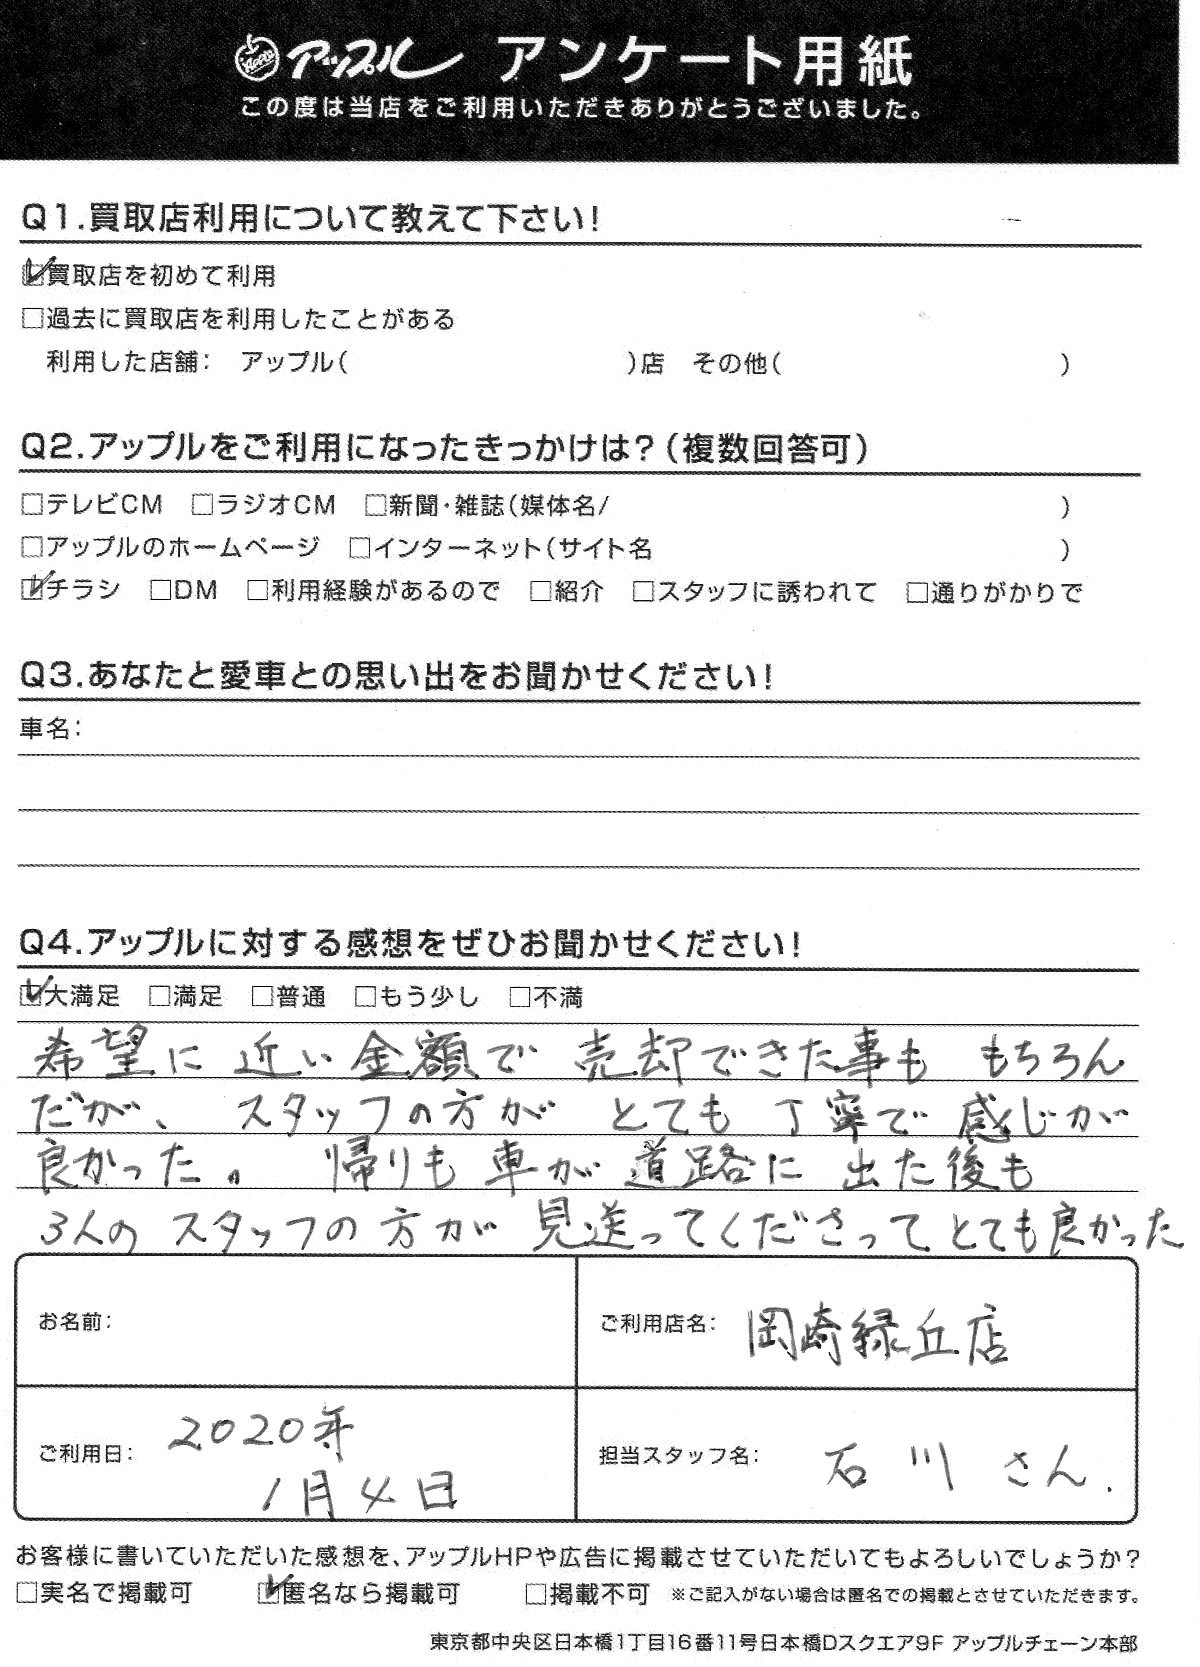 Apple アップル アンケート用紙
この度は当店をご利用いただきありがとうございました。
Q1.買取店利用について教えて下さい!
☑買取店を初めて利用
□過去に買取店を利用したことがある
利用した店舗: アップル( )店 その他( )
Q2.アップルをご利用になったきっかけは?(複数回答可)
□テレビCM □ラジオCM □新聞・雑誌(媒体名/ )
□アップルのホームページ □インターネット(サイト名 )
☑チラシ □DM □利用経験があるので □紹介 □スタッフに誘われて □通りがかりで
Q3.あなたと愛車との思い出をお聞かせください!
車名:
Q4.アップルに対する感想をぜひお聞かせください!
☑大満足 □満足 □普通 □もう少し □不満
希望に近い金額で売却できた事も もちろん
だが、スタッフの方が とても丁寧で感じが
良かった。帰りも車が道路に出た後も
3人のスタッフの方が見送ってくださってとても良かった
お名前:
ご利用店名: 岡崎緑丘店
ご利用日: 2020年
1月4日
担当スタッフ名: 石川さん.
お客様に書いていただいた感想を、アップルHPや広告に掲載させていただいてもよろしいでしょうか?
□実名で掲載可 ☑匿名なら掲載可 □掲載不可 ※ご記入がない場合は匿名での掲載とさせていただきます。
東京都中央区日本橋1丁目16番11号日本橋Dスクエア9F アップルチェーン本部